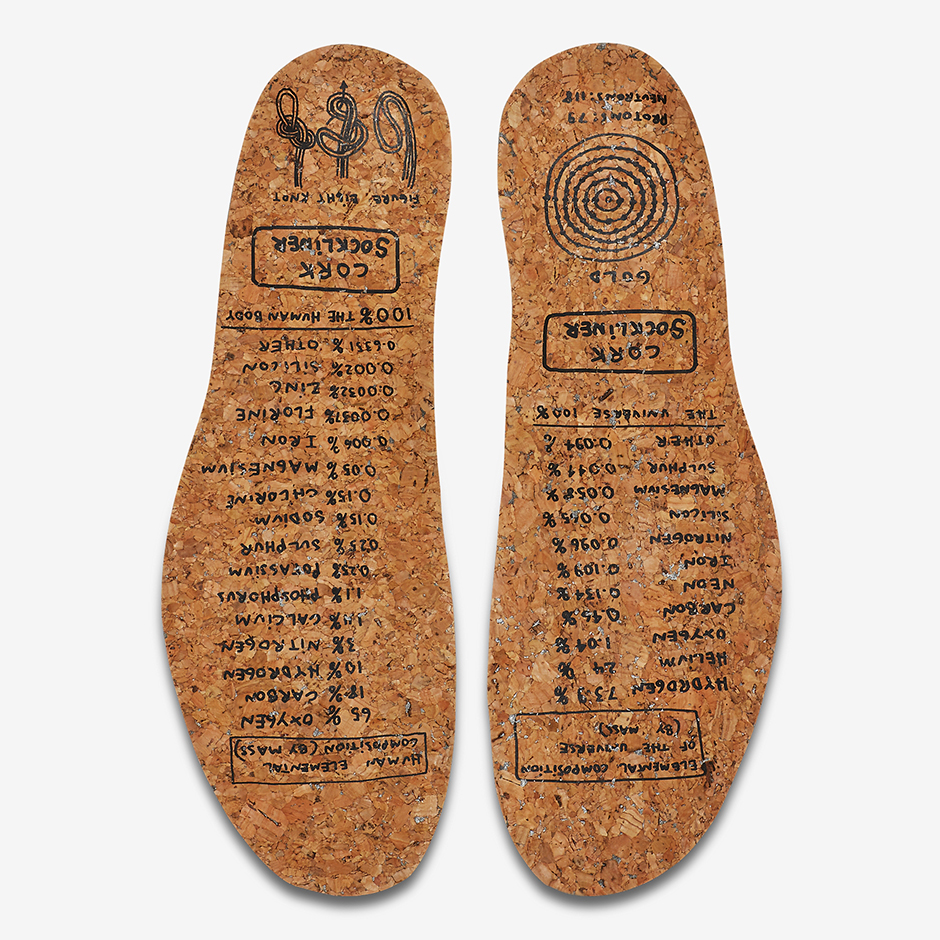 ELEMENTAL COMPOSITION
OF THE UNIVERSE
(BY MASS)
HYDROGEN 73.9%
HELIUM 24 %
OXYGEN 1.04%
CARBON 0.45%
NEON 0.134%
IRON 0.109%
NITROGEN 0.096%
SILICON 0.065%
MAGNESIUM 0.058%
SULPHUR 0.044%
OTHER 0.094%
THE UNIVERSE 100%
CORK
SOCKLINER
GOLD
PROTONS:79
NEUTRONS:118
HUMAN ELEMENTAL
COMPOSITION (BY MASS)
65 % OXYGEN
18% CARBON
10% HYDROGEN
3% NITROGEN
1.4% CALCIUM
1.1% PHOSPHORUS
0.25% POTASSIUM
025% SULPHUR
0.15% SODIUM
0.15% CHLORINE
0.05% MAGNESIUM
0.006% IRON
0.0037% FLORINE
0.0032% ZINC
0.002% SILICON
0.6351% OTHER
100% THE HUMAN BODY
CORK
SOCKLINER
FIGURE, EIGHT KNOT